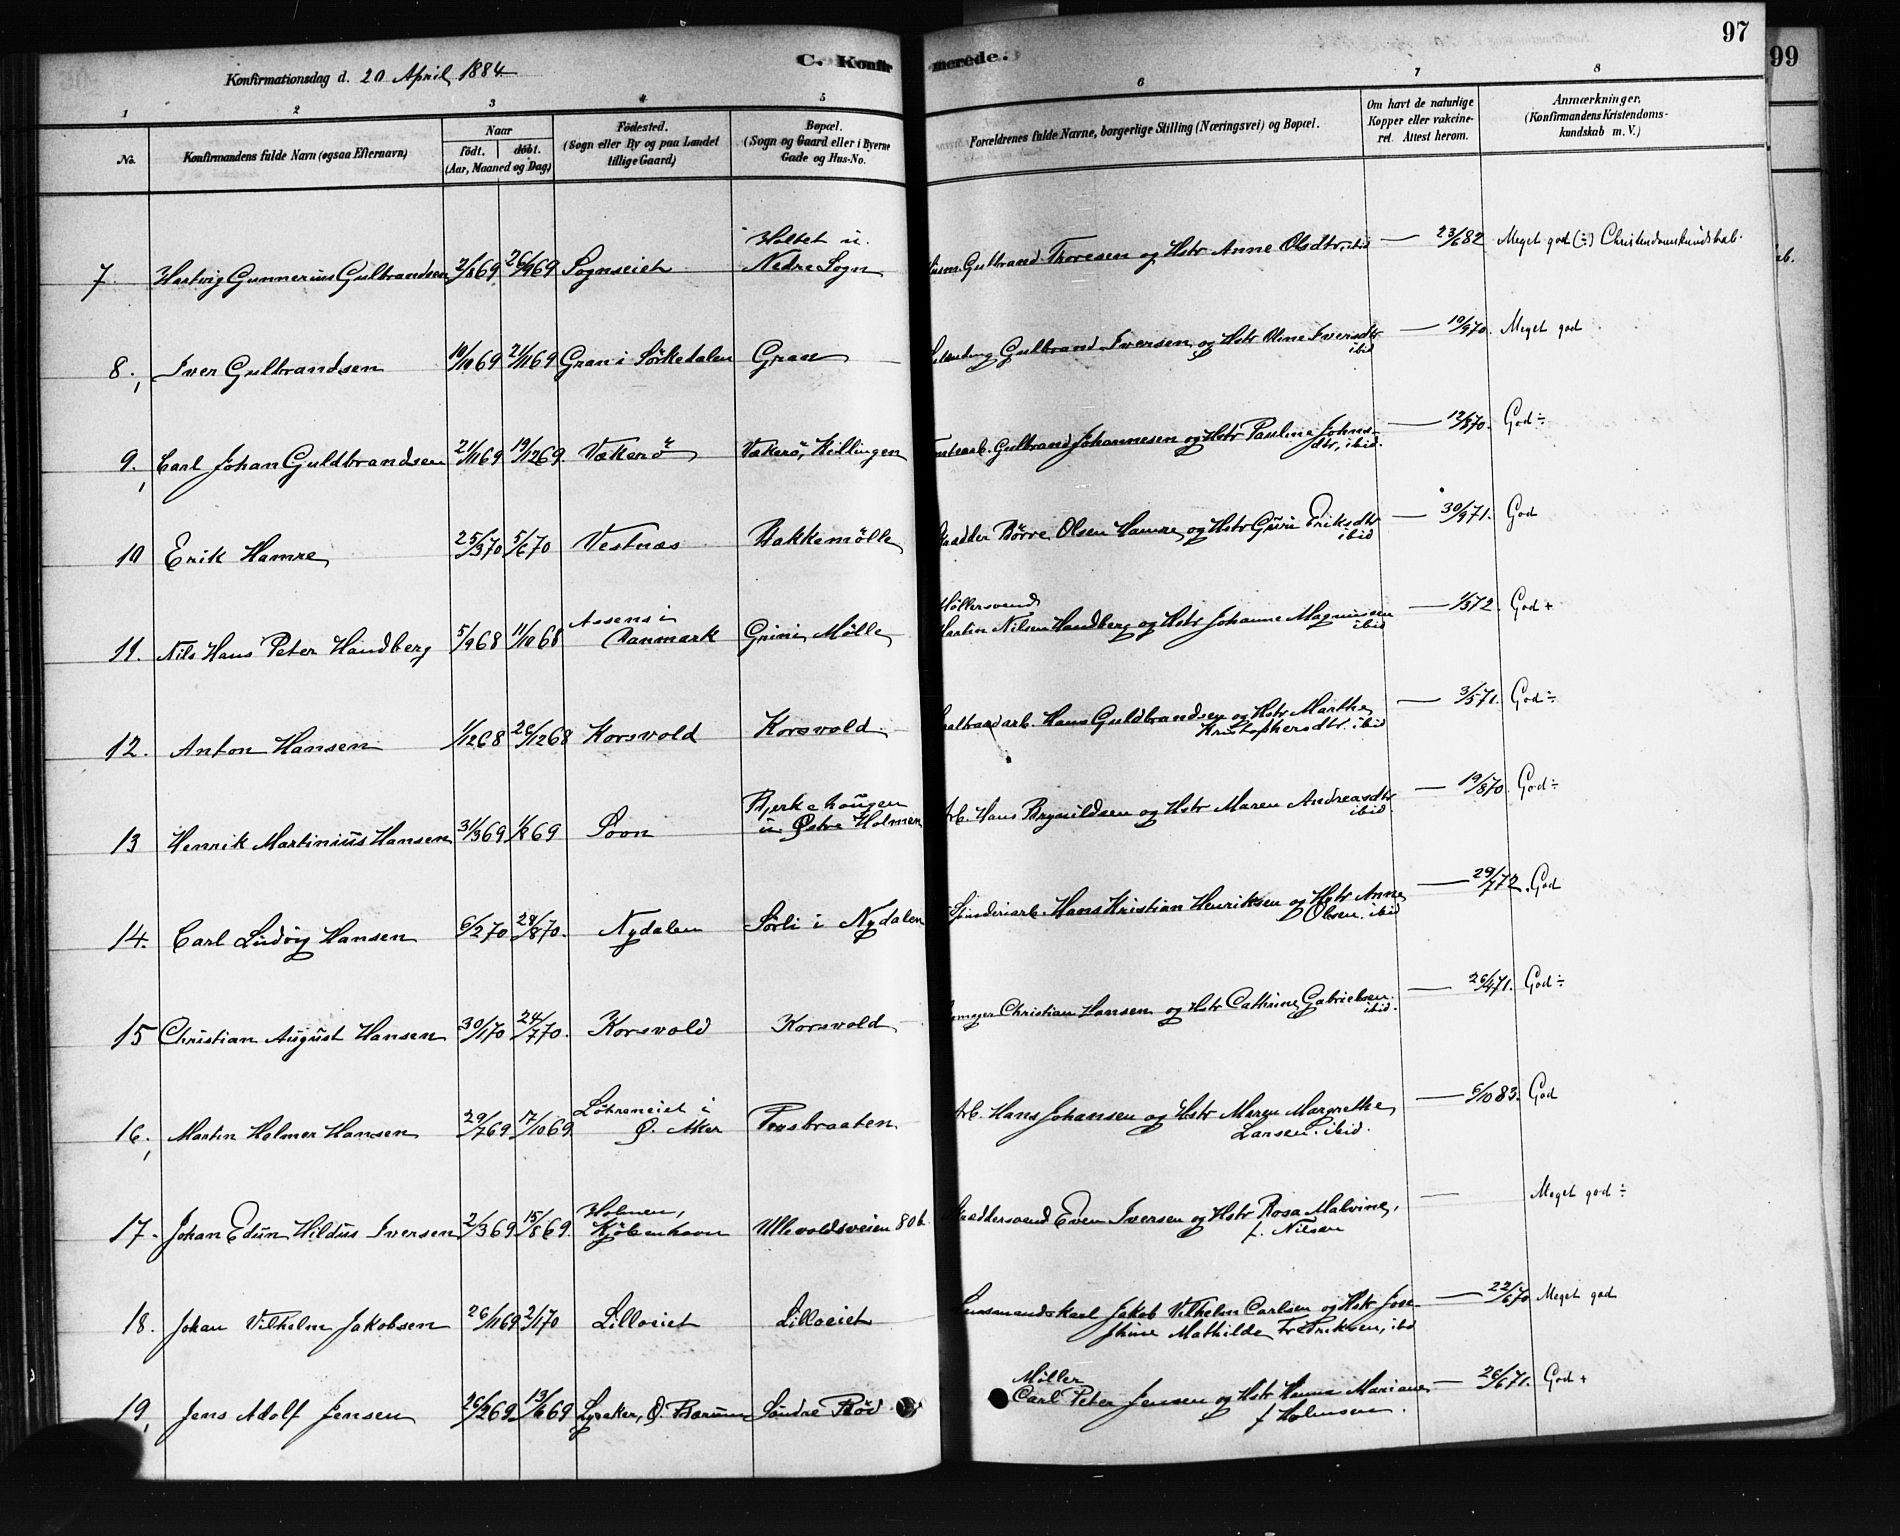 97
99
Konfirmationsdag d. 20 April 1884
C. Konfir
merede.
1 2 3 4 5 6 7 8
No.
Konfirmandens fulde Navn (ogsaa Efternavn)
Naar
født. døbt.
(Aar, Maaned og Dag)
Fødested.
(Sogn eller By og paa Landet
tillige Gaard)
Bopæl.
(Sogn og Gaard eller i Byerne
Gade og Hus-No.
Forældrenes fulde Navne, borgerlige Stilling (Næringsvei) og Bopæl.
Om havt de naturlige
Kopper eller vakcine-
ret. Attest herom.
Anmærkninger.
(Konfirmandens Kristendoms-
kundskab m. V.)
Holtet u.
7. Hartvig Gunnerius Gulbrandsen 2/8 69 26/9 69 Sognseiet Nedre Sogn Gulbrand Thoresen og Hstr Anne Olsdtr, ibid — 23/6 82 Meget god (÷) Christendomskundskab.
8. Iver Gulbrandsen 10/10 69 21/11 69 Gran i Sørkedalen Gran Gulbrand Iversen og Hstr Oline Iversdtr — 10/9 70. Meget god
ibid
9. Carl Johan Guldbrandsen 21/11 69 19/12 69 Vækerø Vækerø, Killingen Gulbrand Johannesen og Hstr Pauline Johns- — 12/8 70. God ÷
dtr, ibid.
10 Erik Hamre 25/3 70 5/6 70 Vestnæs Bakkemølle Børre Olsen Hamre og Hstr Guri Eriksdtr — 30/9 71. God
ibid
Assens i
Møllersvend
11. Nils Hans Peter Handberg 5/9 68 11/10 68 Danmark Grini Mølle Martin Nilsen Handberg og Hstr Johanne Magnusen — 1/5 72. God +
ibid
12. Anton Hansen 1/12 68 26/12 68 Korsvold Korsvold Hans Guldbrandsen og Hstr Marthe — 3/5 71. God ÷
Kristophersdtr. ibid
Bjerkehaugen
13 Henrik Martinius Hansen 31/3 69 1/8 69 Sogn u. Østre Holmen Arb. Hans Brynildsen og Hstr Maren Andreasdtr — 19/8 70. God ÷
ibid.
14. Carl Ludvig Hansen 6/2 70 28/8 70. Nydalen Sørli i Nydalen Spinderiarb. Hans Kristian Henriksen og Hstr Anne — 29/7 72. God
Olsen. ibid
15 Christian August Hansen 30/1 70 24/7 70. Korsvold Korsvold Christian Hansen og Hstr Cathrine Gabrielsen. — 26/4 71. God ÷
ibid.
16. Martin Holmer Hansen 29/7 69 17/10 69 Ø. Aker Arb. Hans Johansen og Hstr Maren Margrethe — 6/10 83. God
Larsen. ibid.
Holmen,
17. Johan Edun Hildus Iversen 2/3 69 15/8 69. Kjøbenhavn Ullevoldsveien 80 b. Skræddersvend Even Iversen og Hstr Rosa Malvine, — Meget god ÷
f. Nilsen
18. Johan Vilhelm Jakobsen 26/11 69 2/1 70 Lilloeiet Lilloeiet Jakob Vilhelm Carlsen og Hstr Jose- — 22/6 70 Meget god
phine Mathilde Fredriksen, ibd
Møller
19. Jens Adolf Jensen 26/2 69 13/6 69 Lysaker, Ø. Bærum Søndre Rød Carl Peter Jensen og Hstr Hanna Mariane — 26/6 71. God +
f Holmsen.